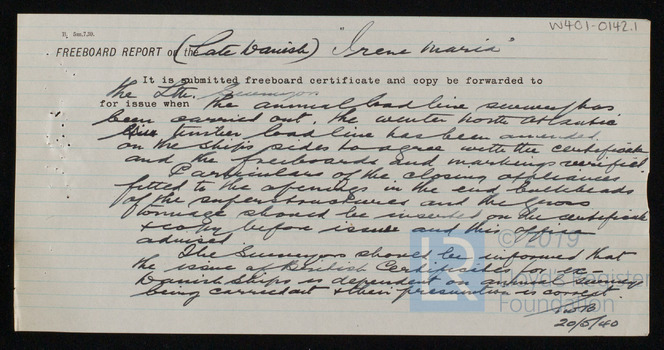 W401-0142.1
FREEBOARD REPORT on the (Late Danish) "Irene Maria"
It is submitted freeboard certificate and copy be forwarded to
the Lth. Surveyors
for issue when the annual load line survey has
been carried out, the winter North Atlantic
timber load line has been amended
on the ships sides to agree with the certificate
and the freeboards and markings verified.
Particulars of the closing appliances
fitted to the openings in the end bulkheads
of the superstructures and the gross
tonnage should be inserted on the certificate
& copy before issue and this office
advised
The Surveyors should be informed that
the issue of British Certificates for ex
Danish ships is dependent on annual surveys
being carried out & their presumption is correct.
20/6/40
© 2019
LR
Lloyd's Register
Foundation